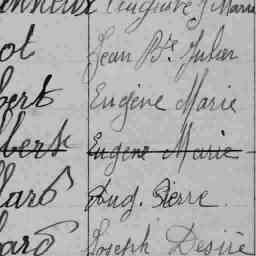 Jean Bte Julien
bert Eugène Marie
bert Eugene Marie
lard Aug. Pierre
ard Joseph Désiré